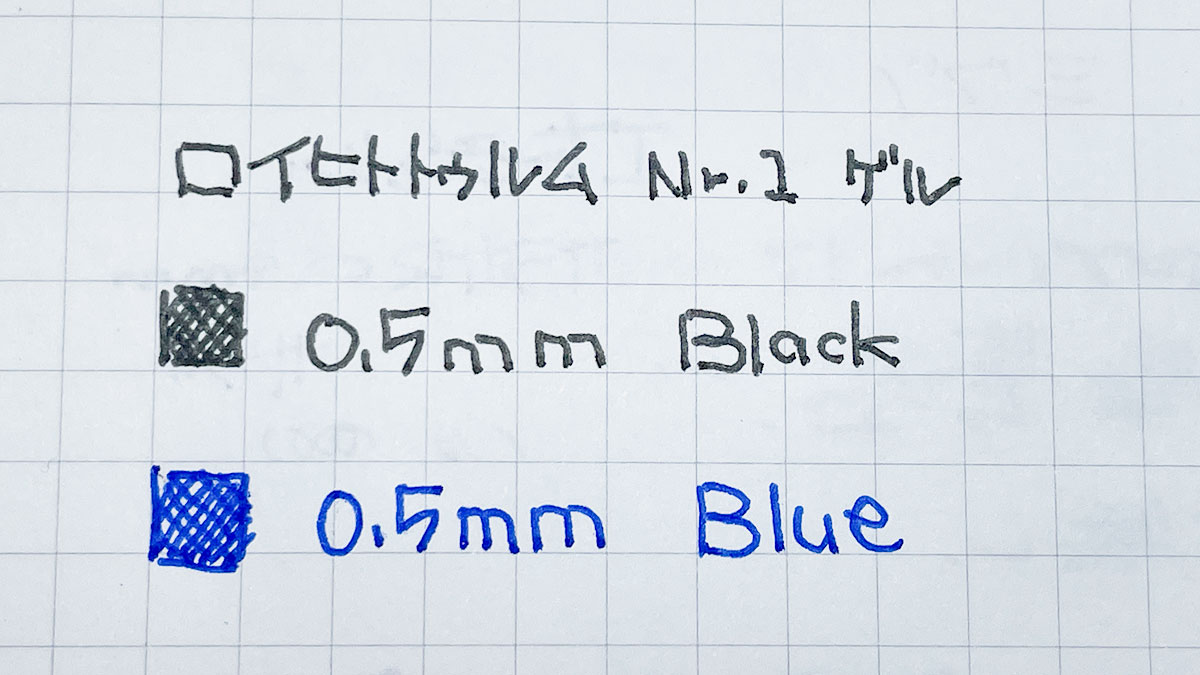 ロイヒトトゥルム Nr.1 ゲル
0.5mm Black
0.5mm Blue